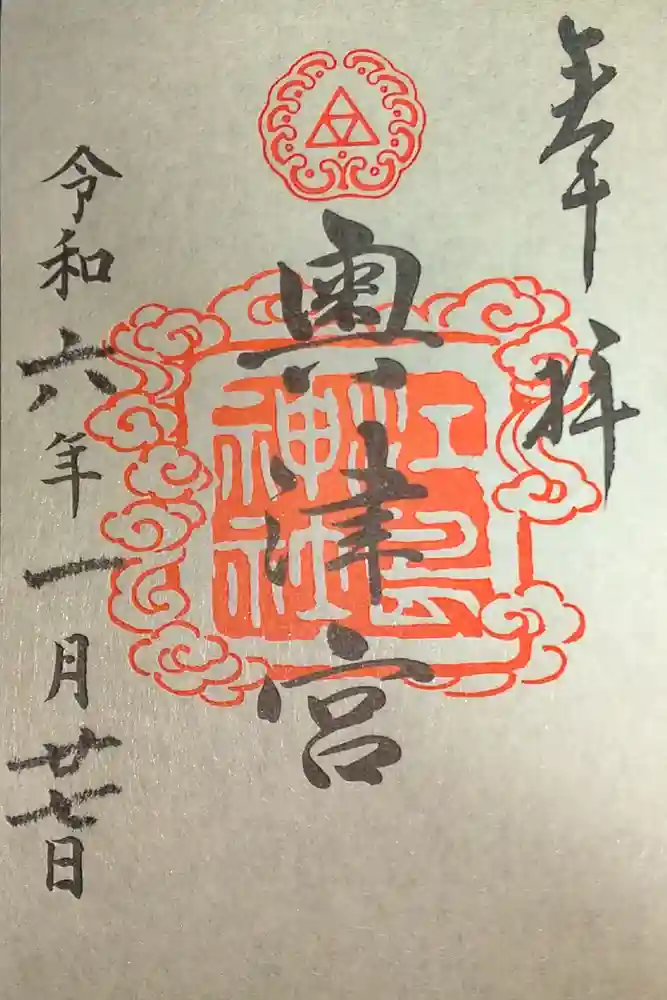 奉拝
奥津宮
江島神社
令和六年一月廿七日